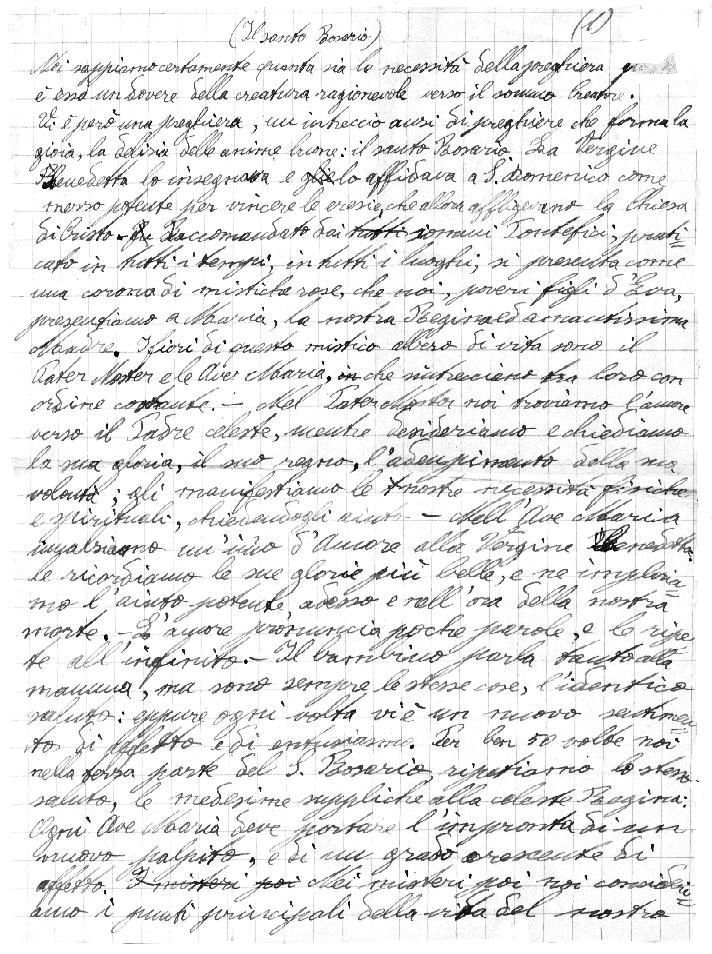 (1)
(Il santo Rosario)
Noi sappiamo certamente quanta sia la necessità della preghiera
è essa un dovere della creatura ragionevole verso il sommo Creatore.
Vi è però una preghiera, un intreccio anzi di preghiere che forma la
gioia, la delizia delle anime buone: il santo Rosario. La Vergine
Benedetta lo insegnava e lo affidava a S. Domenico come
mezzo potente per vincere le eresie, che allora affliggevano la Chiesa
di Cristo. Raccomandato dai tutti sommi Pontefici, prati=
cato in tutti i tempi, in tutti i luoghi, si presenta come
una corona di mistiche rose, che noi, poveri figli d'Eva,
presentiamo a Maria, la nostra Regina ed amantissima
Madre. I fiori di questo mistico albero di vita sono il
Pater Noster e le Ave Maria, in che s'intrecciano tra loro con
ordine costante. - Nel Pater Noster noi troviamo l'amore
verso il Padre celeste, mentre desideriamo e chiediamo
la sua gloria, il suo regno, l'adempimento della sua
volontà; gli manifestiamo le nostre necessità fisiche
e spirituali, chiedendogli aiuto - Nell'Ave Maria
innalziamo un inno d'Amore alla Vergine Benedetta:
le ricordiamo le sue glorie più belle, e ne imploria=
mo l'aiuto potente, adesso e nell'ora della nostra
morte. - L'amore pronuncia poche parole, e le ripe
te all'infinito. - Il bambino parla tanto alla
mamma, ma sono sempre le stesse cose, l'identico
saluto: eppure ogni volta vi è un nuovo sentimen=
to di affetto e di entusiasmo. Per ben 50 volte noi
nella terza parte del S. Rosario, ripetiamo lo stesso
saluto, le medesime suppliche alla celeste Regina:
Ogni Ave Maria deve portare l'impronta di un
nuovo palpito, e di un grado crescente di
affetto. I misteri poi Nei misteri poi noi consideri=
amo i punti principali della vita del nostro